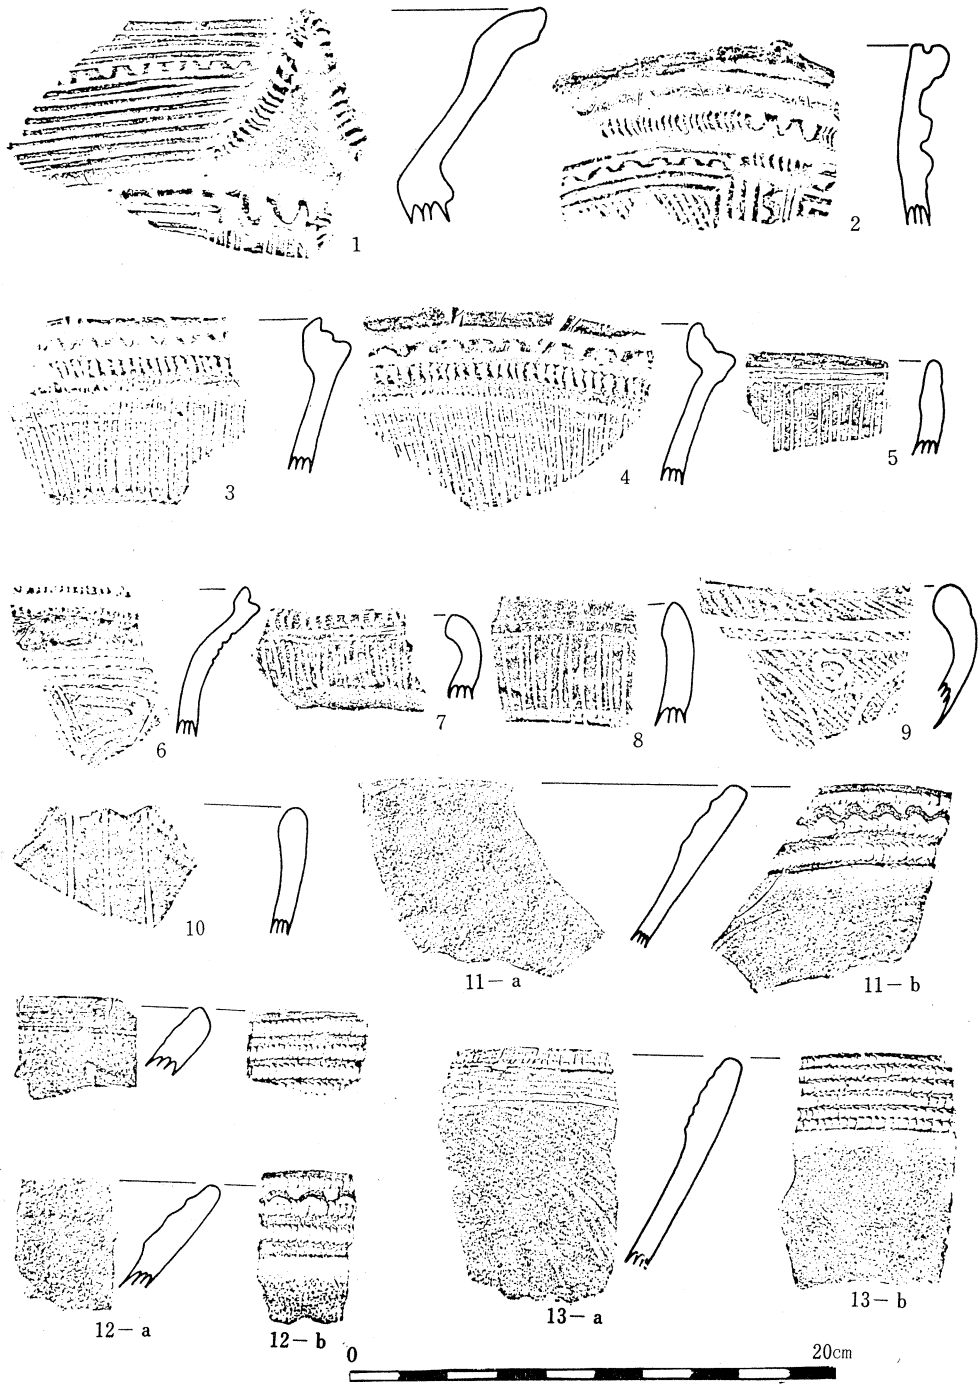 1
2
3
4
5
6
7
8
9
10
11－a
11－b
12－a
12－b
13－a
13－b
0
20cm